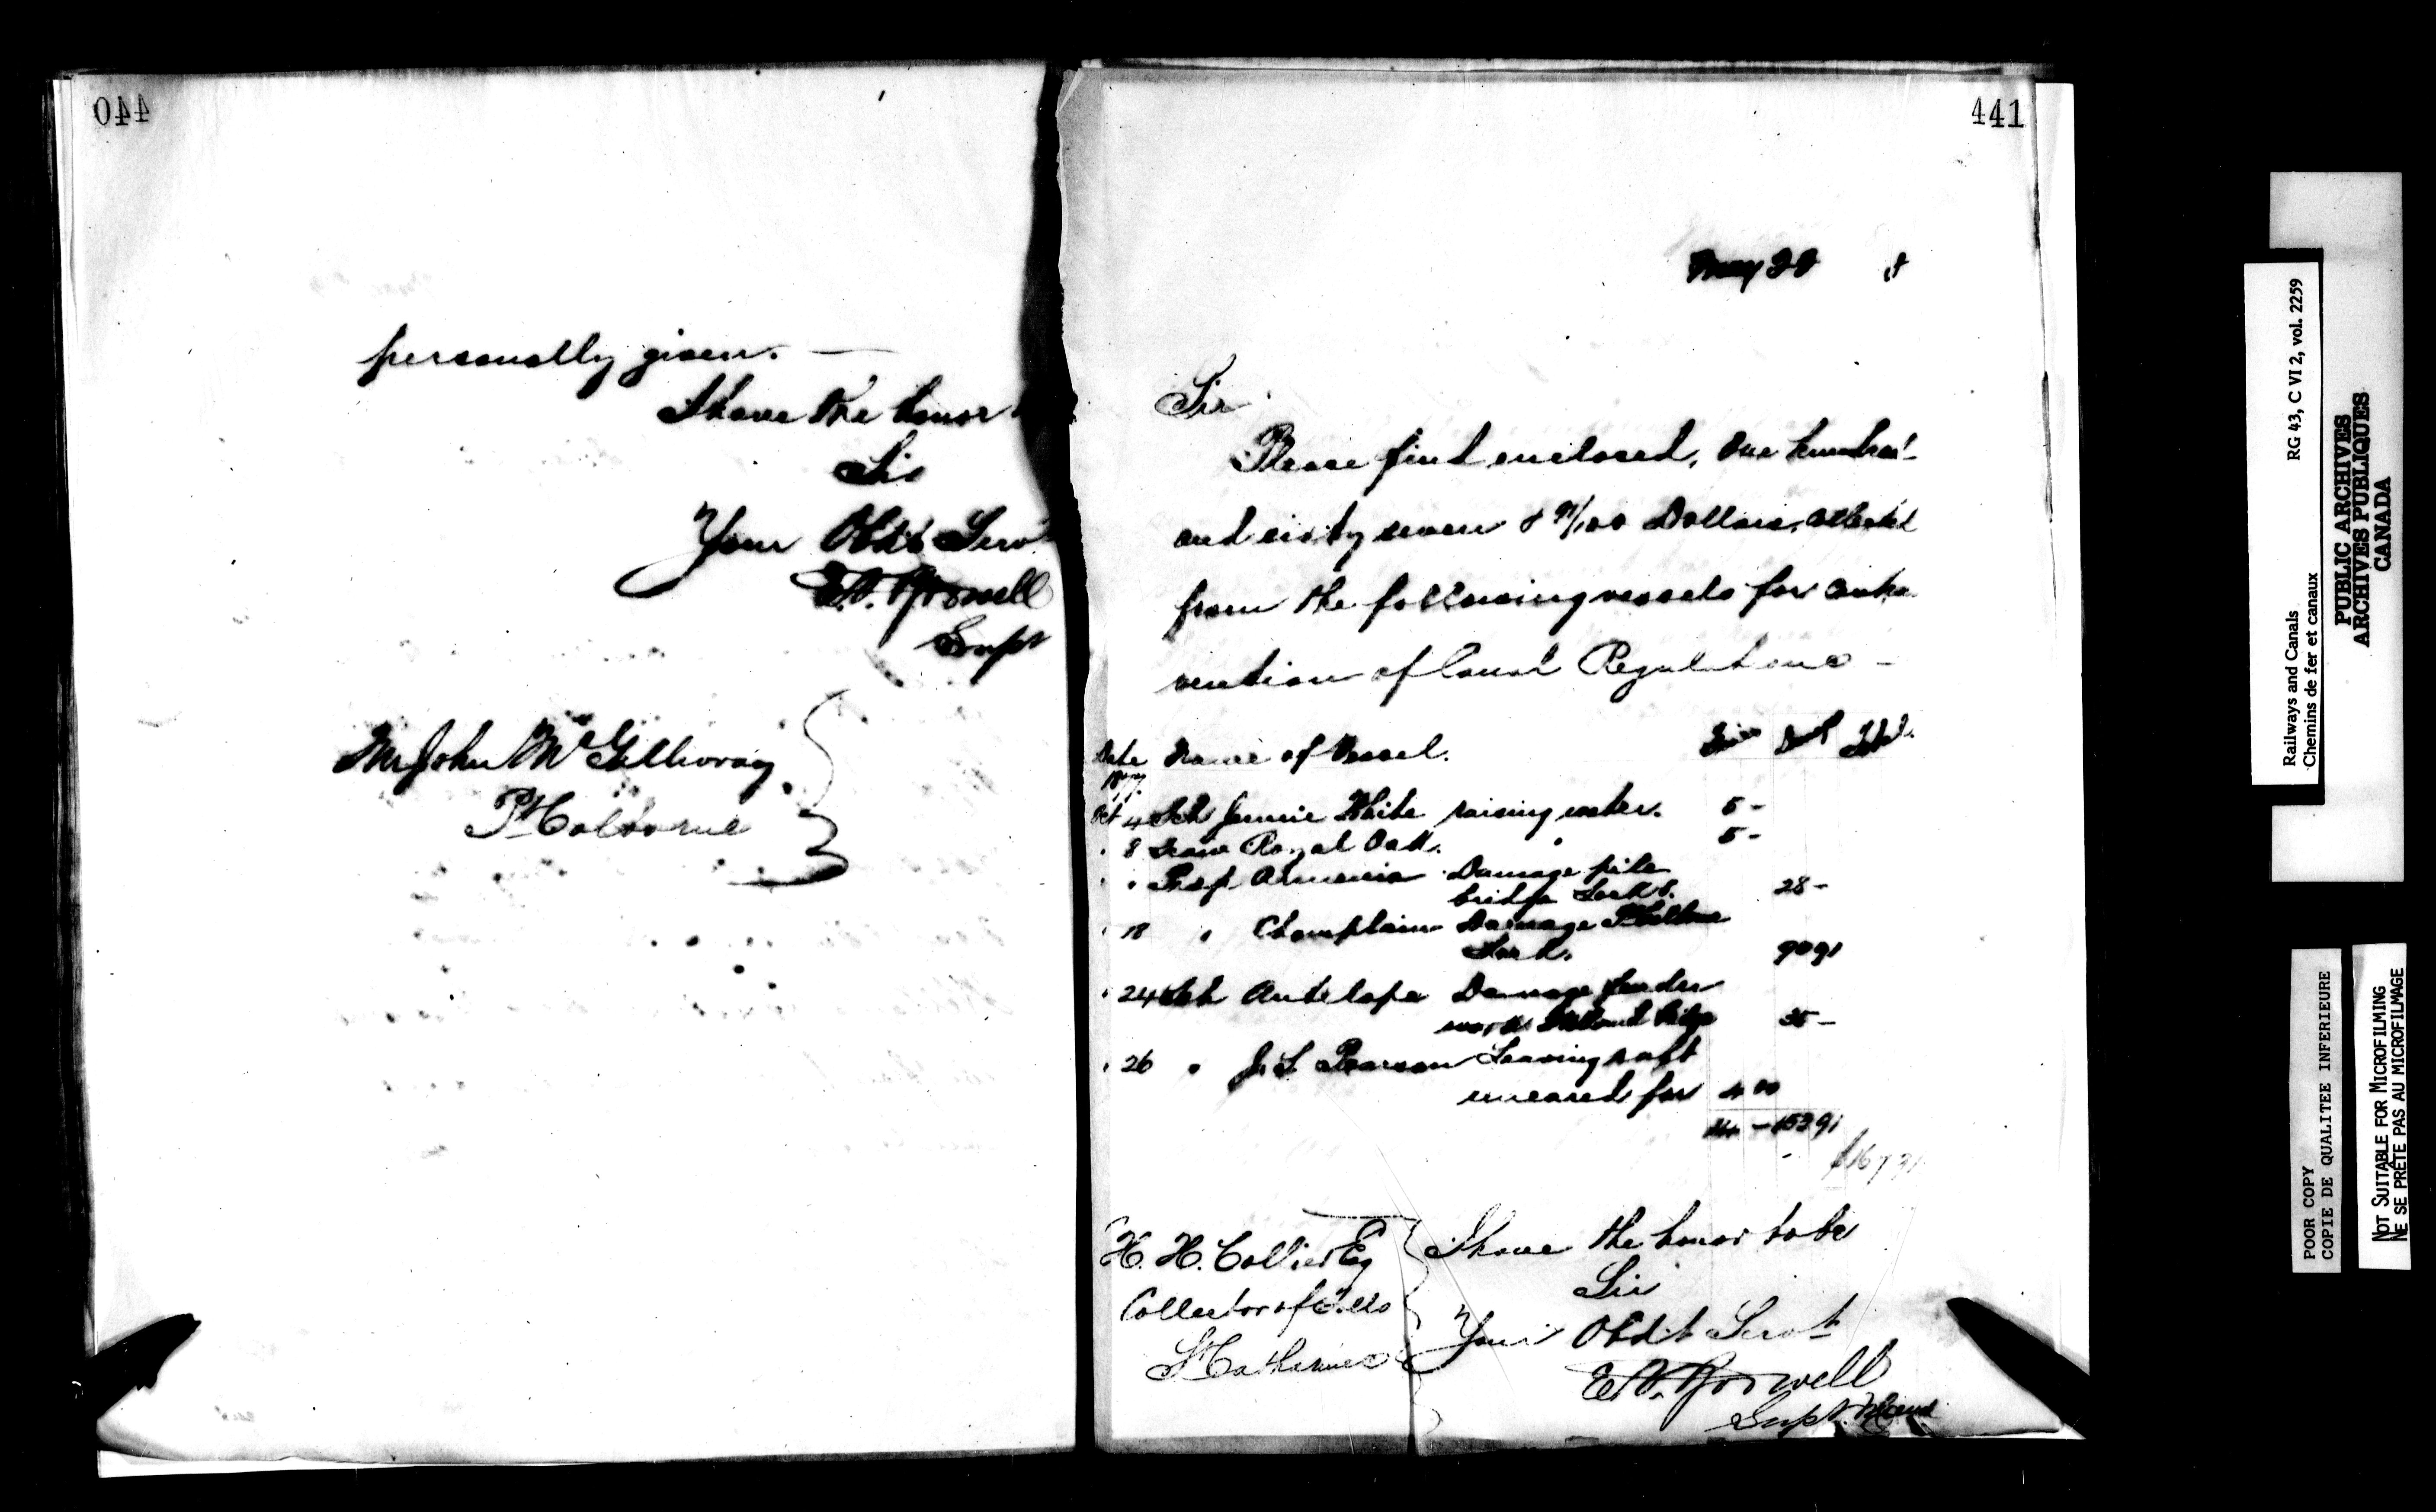 440
personally given. —
I have the honor
Sir
Your Obdt Servt
E.V. Bodwell
Supt
Mr John McGillivray
Pt Colborne
441
May 28 8
Sir
Please find enclosed, One hundred
and sixty seven & 91/100 Dollars, collected
from the following vessels for contra
vention of Canal Regulations –
Date Name of Vessel. Fine Total.
1877
Oct 4 Sch Jennie White raising water. 5 –
" 8 Royal Oak. " 5 –
" " Prop Armenia Damage pile
bridge Lock 8. 28 –
" 18 " Champlain Damage Pt Colborne
Lock. 90 91
" 24 Sch Antelope Damage fender
work Welland 35 –
" 26 " J. S. Pearson Leaving raft
uncared for 4 00
14 – 153 91
$167 91
H. H. Collier Esq
Collector of Tolls
St Catherines
I have the honor to be
Sir
Your Obdt Servt
E.V. Bodwell
Supt.
Railways and Canals RG 43, C VI 2, vol. 2259
Chemins de fer et canaux
PUBLIC ARCHIVES
ARCHIVES PUBLIQUES
CANADA
POOR COPY
COPIE DE QUALITEE INFERIEURE
NOT SUITABLE FOR MICROFILMING
NE SE PRÊTE PAS AU MICROFILMAGE